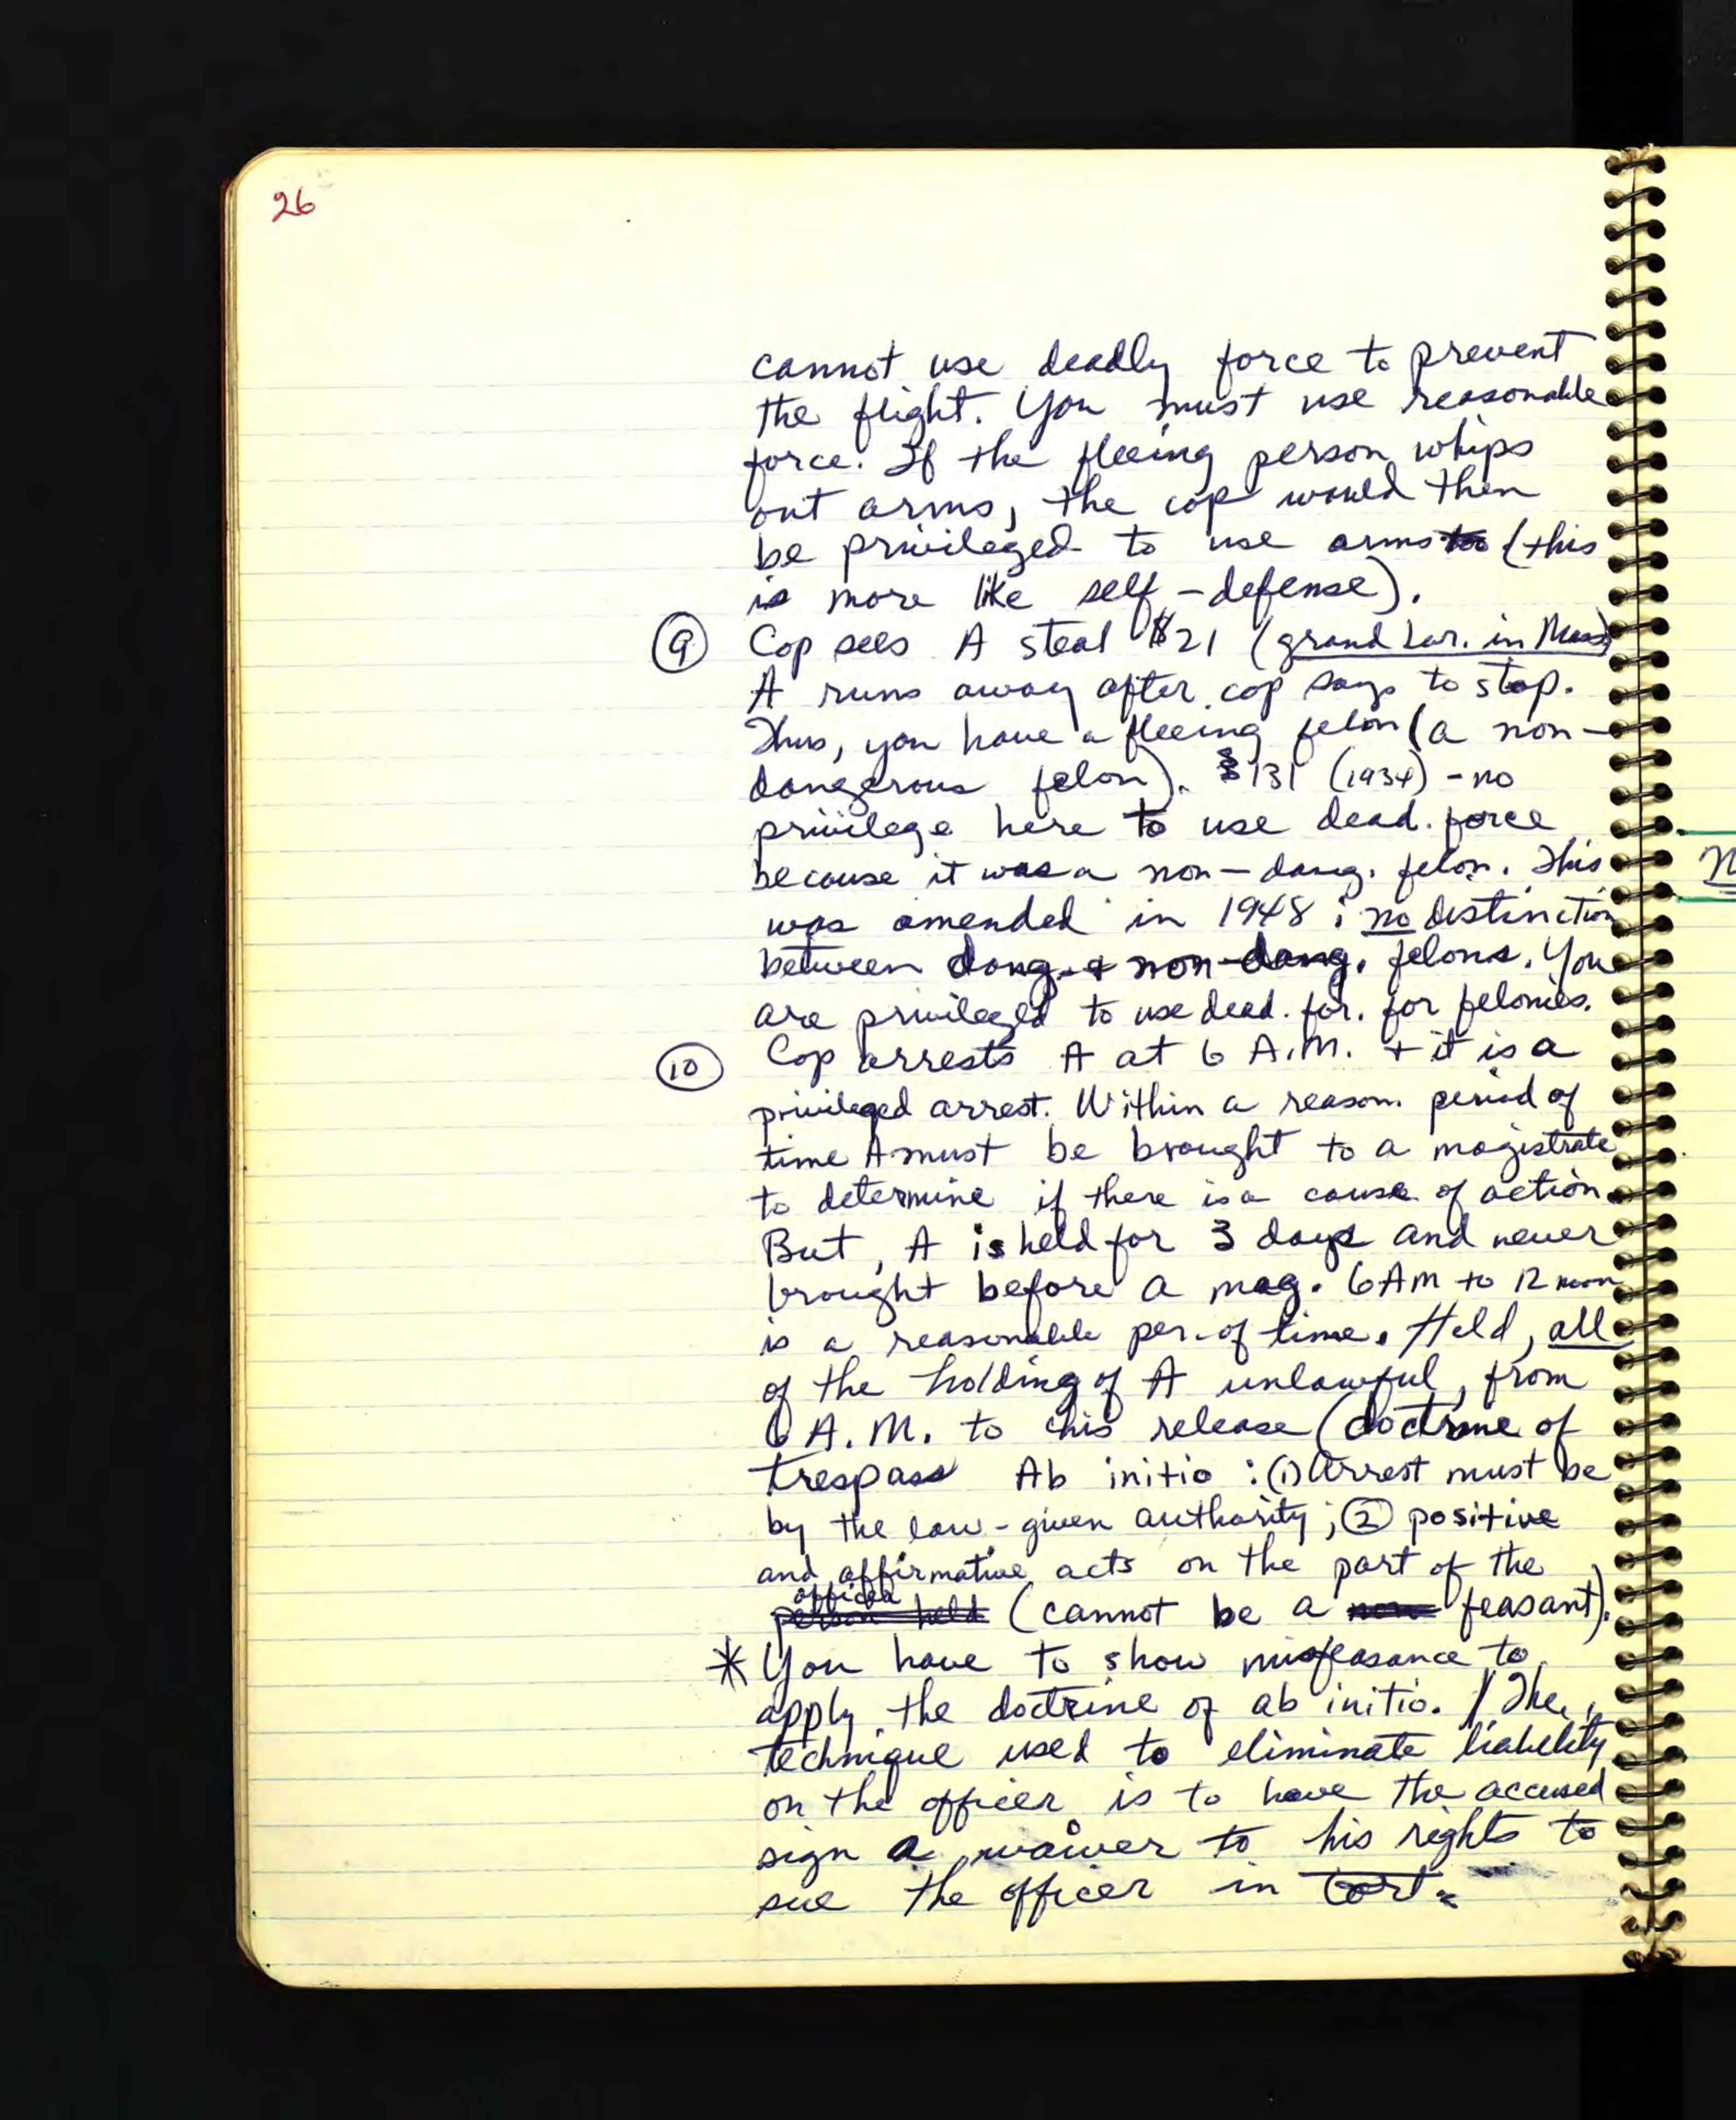 26
cannot use deadly force to prevent
the flight. You must use reasonable
force. If the fleeing person whips
out arms, the cop would then
be privileged to use arms too (this
is more like self-defense).
⑨ Cop sees A steal $21 (grand Lar. in Mass)
A runs away after cop says to stop.
Thus, you have a fleeing felon (a non-
dangerous felon). § 131 (1934) - no
privilege here to use dead. force
because it was a non-dang. felon. This
was amended in 1948: no distinction
between dang. & non-dang. felons. You
are privileged to use dead. for. for felonies.
⑩ Cop arrests A at 6 A.M. + it is a
privileged arrest. Within a reason. period of
time A must be brought to a magistrate
to determine if there is a cause of action.
But, A is held for 3 days and never
brought before a mag. 6AM to 12 noon
is a reasonable per. of time. Held, all
of the holding of A unlawful, from
6 A.M. to his release (doctrine of
trespass Ab initio: (1) Arrest must be
by the law-given authority; ② positive
and affirmative acts on the part of the
officer
person held (cannot be a non feasant).
* You have to show misfeasance to
apply the doctrine of ab initio. / The
technique used to eliminate liability
on the officer is to have the accused
sign a waiver to his rights to
sue the officer in tort.